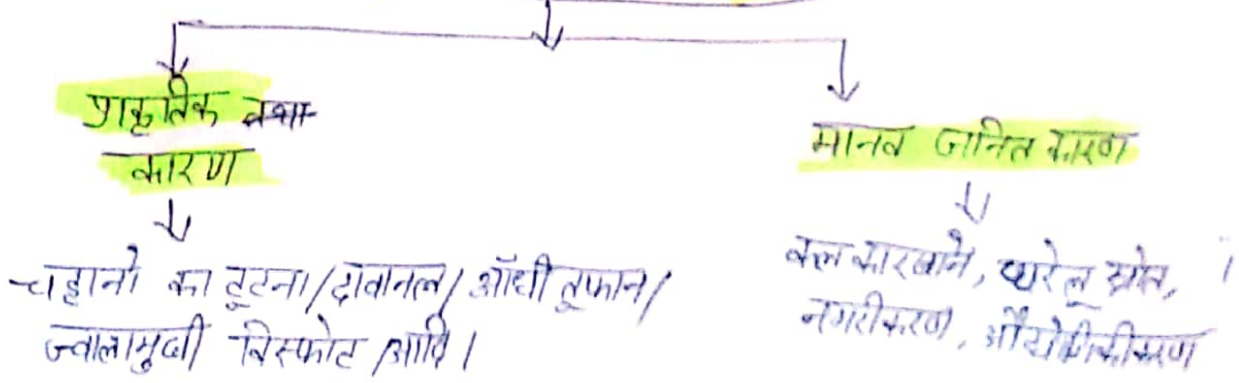 प्राकृतिक तथा
कारण
चट्टानो का टूटना/दावानल/आँधी तूफान/
ज्वालामुखी विस्फोट/आदि।
मानव जनित कारण
कल कारखाने, घरेलू स्रोत,
नगरीकरण, औद्योगिकीकरण